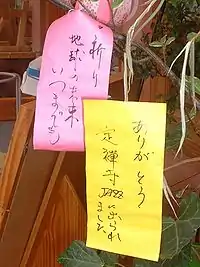 祈り
地球の未来
いつまでも
ありがとう
定禅寺
JAZZに出られ
ました